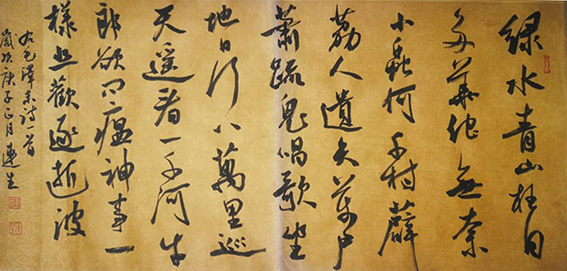 绿水青山枉自
多華佗無奈
小蟲何千村薜
荔人遺矢萬户
蕭疏鬼唱歌坐
地日行八萬里巡
天遥看一千河牛
郎欲问瘟神事一
樣悲歡逐逝波
右毛澤東詩一首
歲次庚子正月連生